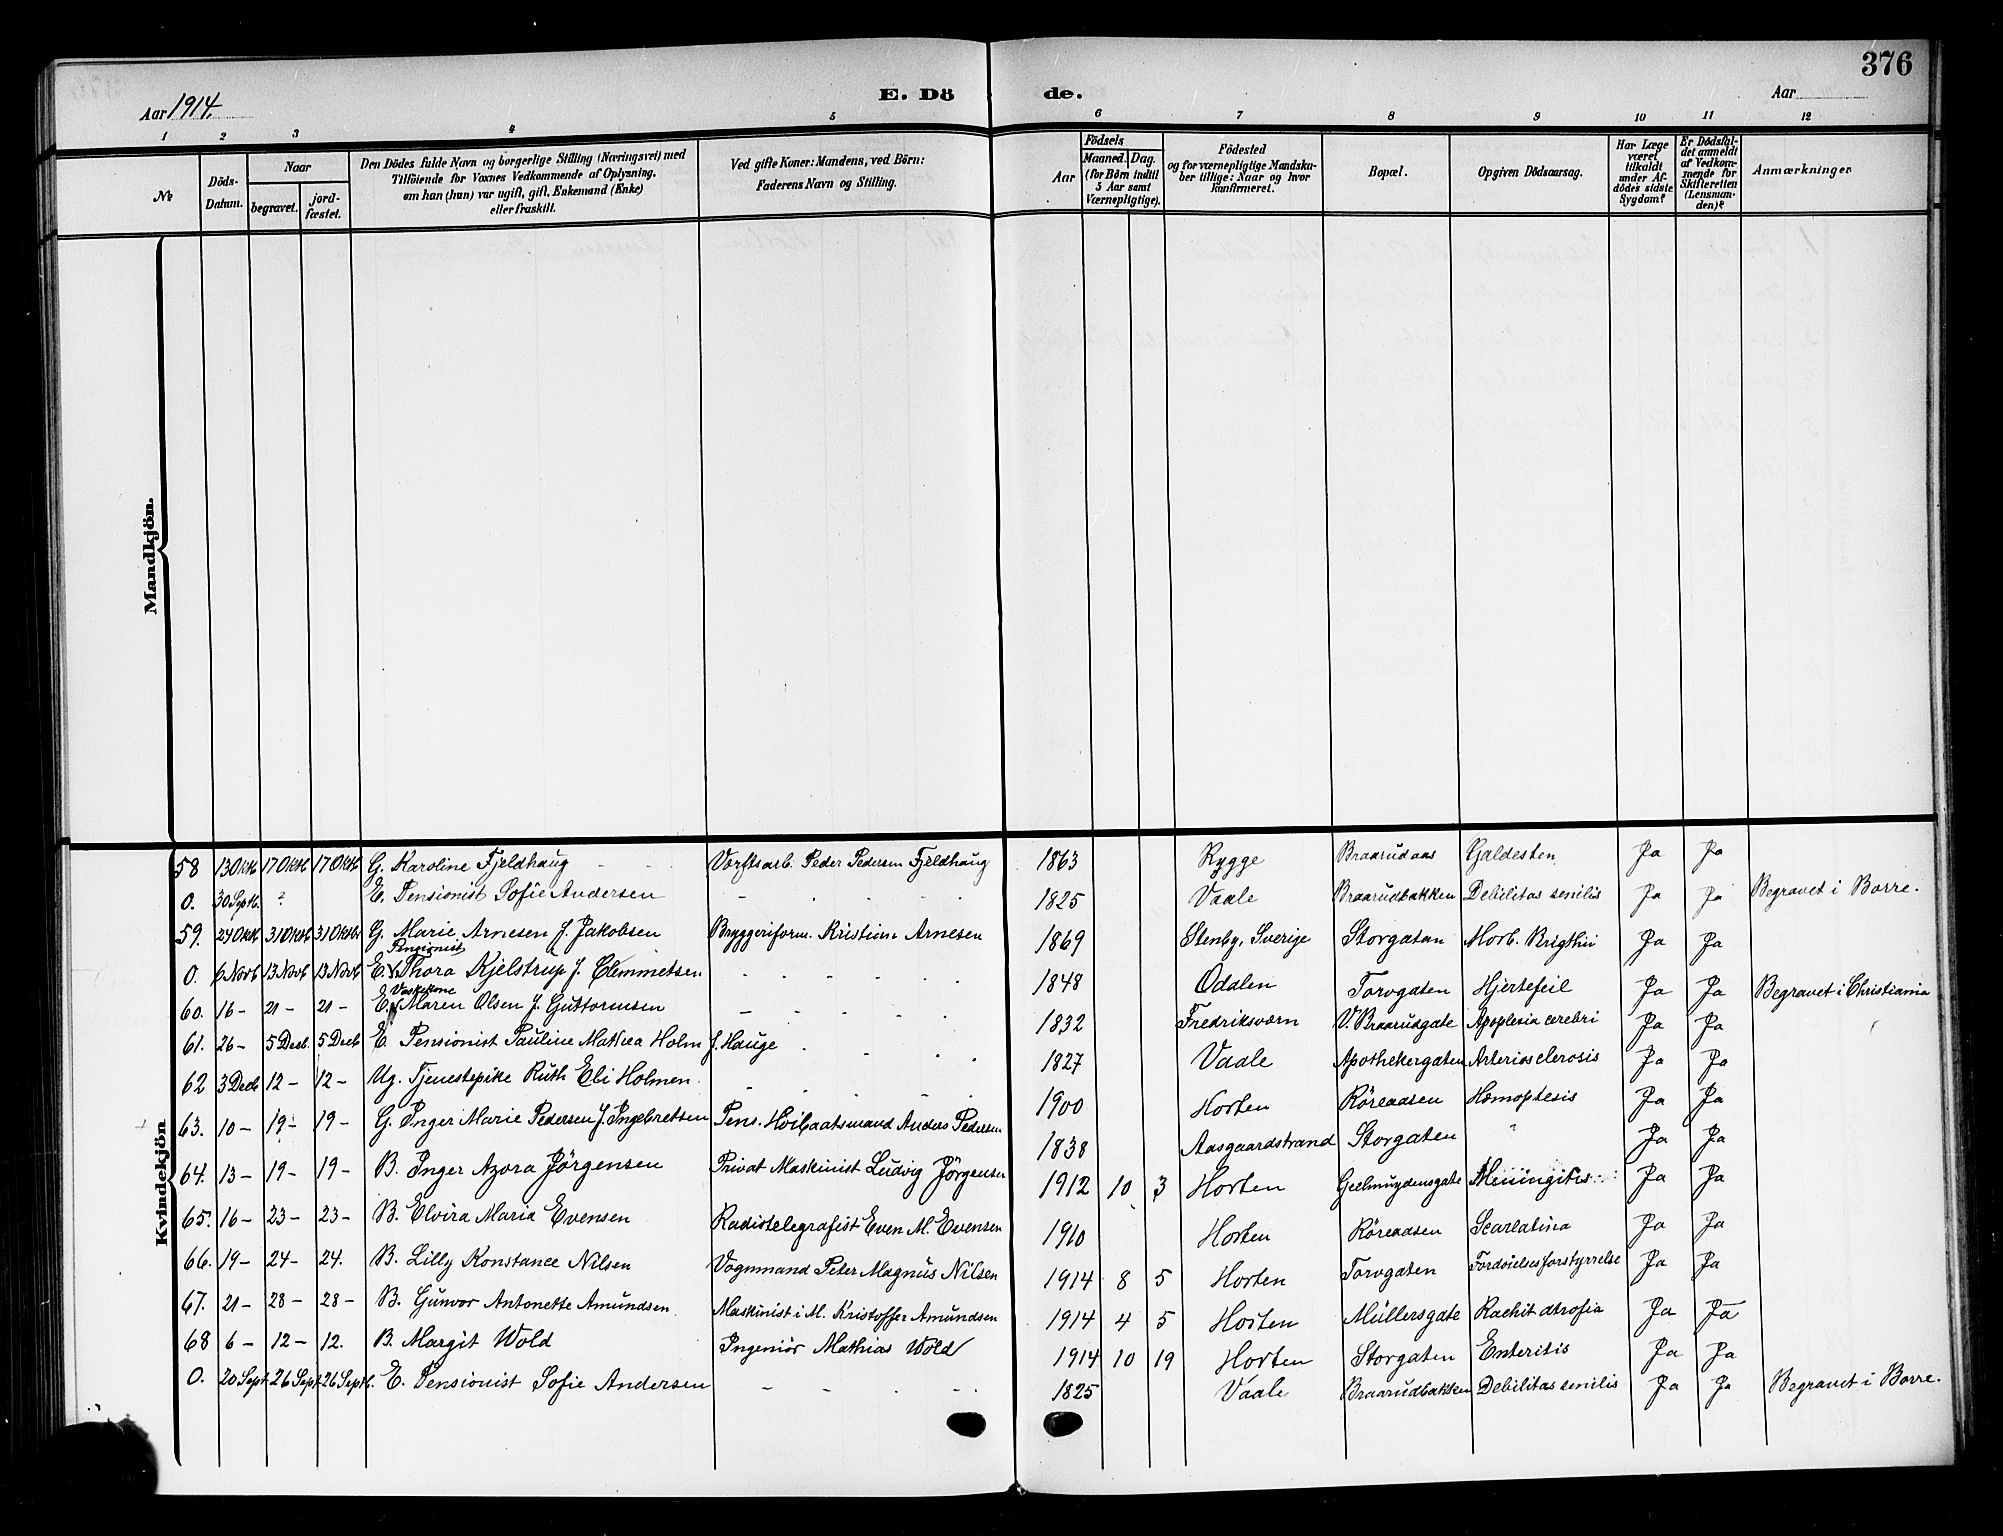 376
Aar 1914. E. Dö de. Aar
1 2 3 4 5 6 7 8 9 10 11 12
№
Döds-Datum.
Naar
begravet.
jord-fæstet.
Den Dödes fulde Navn og borgerlige Stilling (Næringsvei) med
Tilföiende for Voxnes Vedkommende af Oplysning,
om han (hun) var ugift, gift, Enkemand (Enke)
eller fraskilt.
Ved gifte Koner: Mandens, ved Börn:
Faderens Navn og Stilling.
Födsels
Aar
Maaned. Dag.
(for Börn indtil
5 Aar samt
Værnepligtige).
Födested
og for værnepligtige Mandska-
ber tillige: Naar og hvor
konfirmeret.
Bopæl.
Opgiven Dödsaarsag.
Har Læge
været
tilkaldt
under Af-
dödes sidste
Sygdom?
Er Dödsfal-
det anmeldt
af Vedkom-
mende for
Skifteretten
(Lensman-
den)?
Anmærkninger
Mandkjön.
Kvindekjön
58 13 Oktb 17 Oktb 17 Oktb G. Karoline Fjeldhaug Værftsarb. Peder Pedersen Fjeldhaug 1863 Rygge Braarudaas Galdesten Ja Ja
0. 30 Septb. ? E. Pensionist Sofie Andersen — 1825 Vaale Braarudbakken Debilitas senilis Ja Ja Begravet i Borre.
59. 24 Oktb 31 Oktb 31 Oktb G. Marie Arnesen f. Jakobsen Bryggeriform. Kristian Arnesen 1869 Stenby, Sverige Storgatan Morb. Brigthii Ja Ja
Pensionist
0. 6 Novb 13 Novb 13 Novb E. Thora Kjelstrup f. Clemmetsen 1848 Odalen Torvgaten Hjertefeil Ja Ja Begravet i Christiania
Vaskekone
60. 16 – 21 – 21 – E. Maren Olsen f. Guttormsen — 1832 Fredriksværn V. Braarudgate Apoplexia cerebri Ja Ja
61. 26 – 5 Decb. 5 Decb E. Pensionist Pauline Mathea Holm f. Hauge 1827 Vaale Apothekergaten Arteriosclerosis Ja Ja
62 3 Decb 12 – 12 – Ug. Tjenestepike Ruth Eli Holmen — 1900 Horten Röreaasen Hæmoptesis Ja Ja
63. 10 – 19 – 19 – G. Inger Marie Pedersen f. Ingebretsen Pens. Höibaatsmand Anders Pedersen 1838 Aasgaardstrand Storgaten " Ja Ja
64. 13 – 19 – 19 – B. Inger Azora Jörgensen Privat Maskinist Ludvig Jörgensen 1912 10 3 Horten Geelmuydensgate Meningitis Ja Ja
65. 16 – 23 – 23 – B. Elvira Maria Evensen Radiotelegrafist Even M. Evensen 1910 Horten Röreaasen Scarlatina Ja Ja
66. 19 – 24 – 24. B. Lilly Konstance Nilsen Vognmand Peter Magnus Nilsen 1914 8 5 Horten Torvgaten Fordöielsesforstyrrelse Ja Ja
67. 21 – 28 – 28 – B. Gunvor Antonette Amundsen Maskinist i M. Kristoffer Amundsen 1914 4 5 Horten Müllersgate Rachit atrofia Ja Ja
68 6 – 12 – 12. B. Margit Wold Ingeniör Mathias Wold 1914 10 19 Horten Storgaten Enteritis Ja Ja
0. 20 Sept. 26 Sept. 26 Sept. E. Pensionist Sofie Andersen — 1825 Vaale Braarudbakken Debilitas senilis Ja Ja Begravet i Borre.